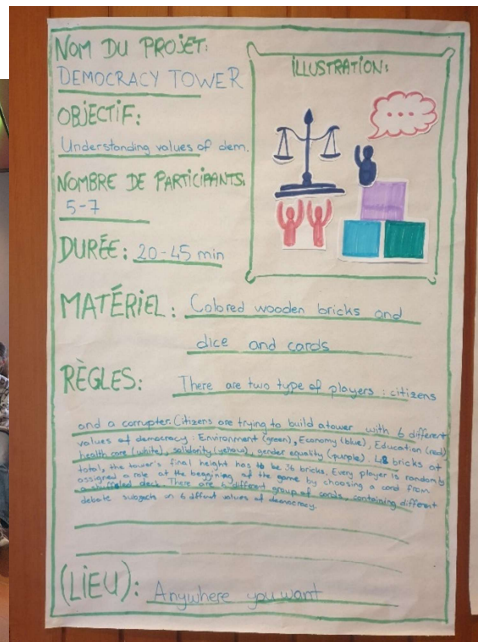 NOM DU PROJET:
DEMOCRACY TOWER
ILLUSTRATION:
OBJECTIF:
Understanding values of dem.
NOMBRE DE PARTICIPANTS:
5-7
DURÉE: 20-45 min
MATÉRIEL: Colored wooden bricks and
dice and cards
RÈGLES: There are two type of players: citizens
and a corrupter. Citizens are trying to build a tower with 6 different
values of democracy: Environment (green), Economy (blue), Education (red)
health care (white), solidarity (yellow), gender equality (purple) 48 bricks of
total, the tower's final height has to be 36 bricks. Every player is randomly
assigned a role at the beggining of the game by choosing a card from
a shuffled deck. There are 6 different group of cards, containing different
debate subjects on 6 diffrent values of democracy.
(LIEU): Anywhere you want